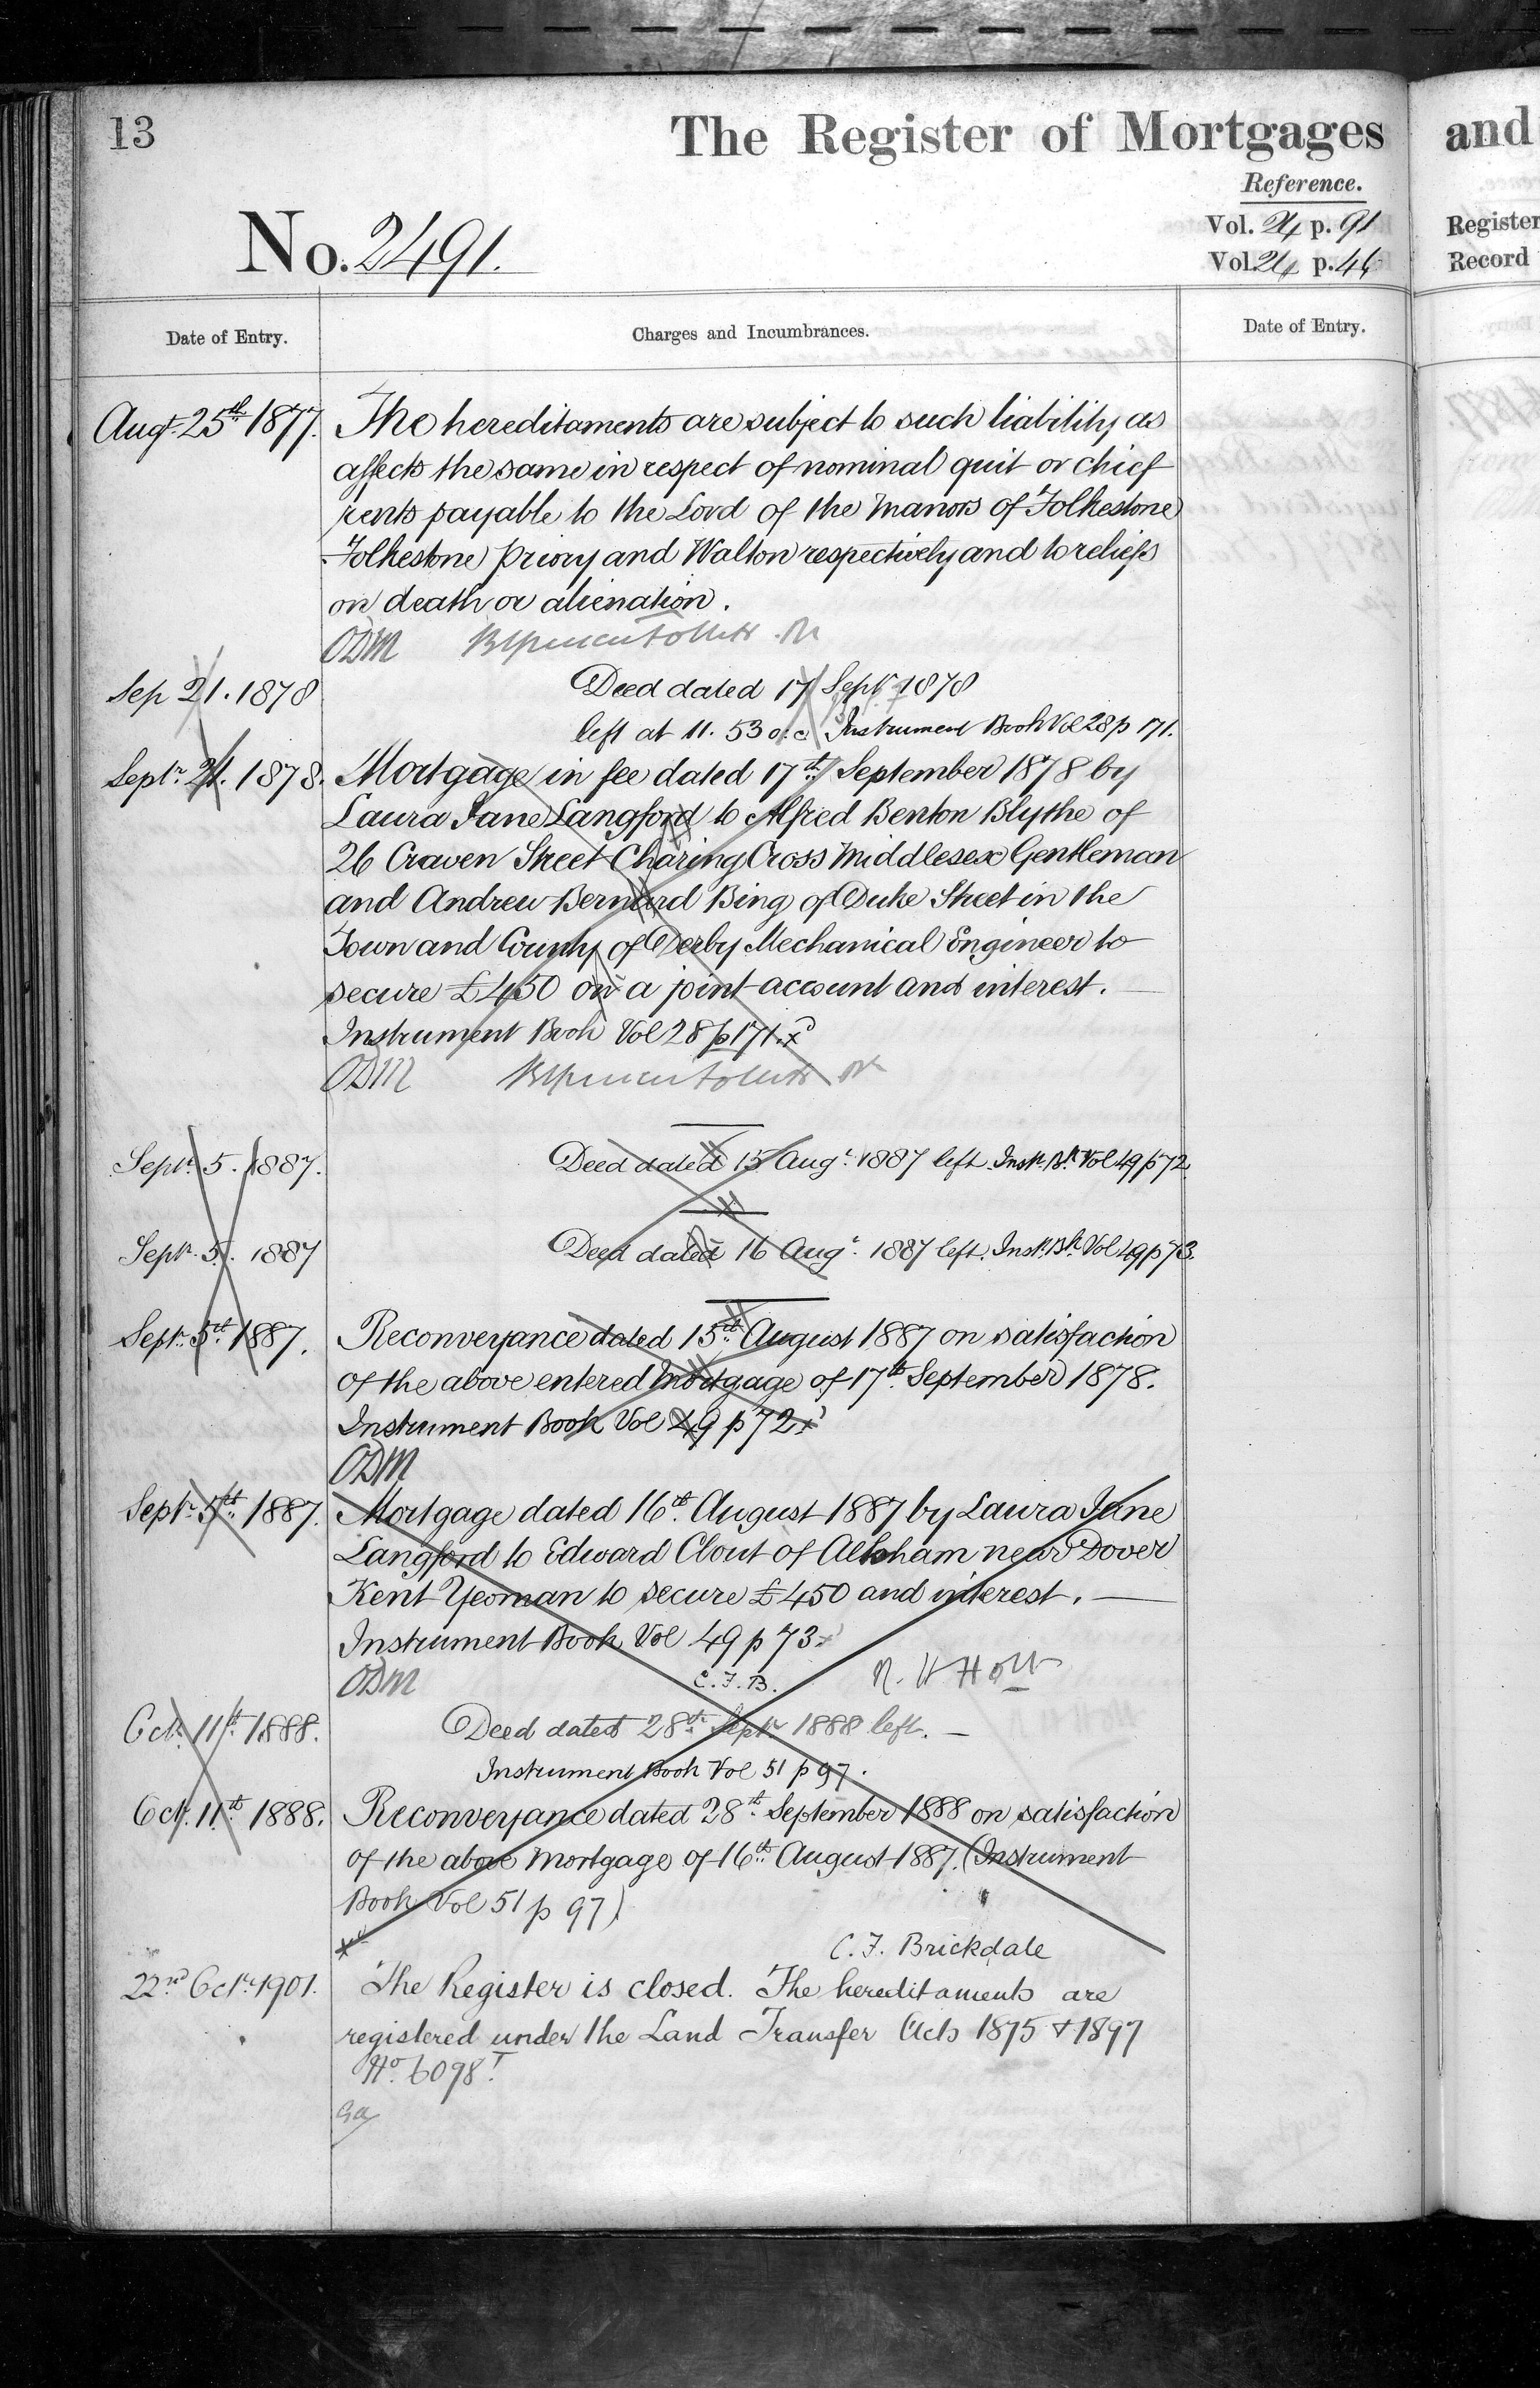 13
The Register of Mortgages
and
Reference.
No. 2491.
Vol. 24 p. 91
Register
Vol. 24 p. 46
Record
Date of Entry.
Charges and Incumbrances.
Date of Entry.
Augt. 25th 1877. The hereditaments are subject to such liability as
affects the same in respect of nominal quit or chief
rents payable to the Lord of the Manors of Folkestone
Folkestone Priory and Walton respectively and to reliefs
on death or alienation.
ODM
Sep 21. 1878 Deed dated 17 Septr 1878
left at 11. 53 o.c. Instrument Book Vol 28 p 171.
Septr 21. 1878. Mortgage in fee dated 17th September 1878 by
Laura Jane Langford to Alfred Benton Blythe of
26 Craven Street Charing Cross Middlesex Gentleman
and Andrew Bernard Bing of Duke Street in the
Town and County of Derby Mechanical Engineer to
secure £450 on a joint account and interest.
Instrument Book Vol 28 p 171.
ODM
Septr. 5. 1887. Deed dated 15 Augt. 1887 left. Instr. Bk. Vol 49 p 72.
Septr. 5. 1887 Deed dated 16 Augt. 1887 left. Instr. Bk. Vol 49 p 73.
Septr. 5th 1887. Reconveyance dated 15th August 1887 on satisfaction
of the above entered Mortgage of 17th September 1878.
Instrument Book Vol 49 p 72
ODM
Septr. 5th 1887. Mortgage dated 16th August 1887 by Laura Jane
Langford to Edward Clout of Alkham near Dover
Kent Yeoman to secure £450 and interest.
Instrument Book Vol 49 p 73
ODM C.F.B. R. H Holt
Octr. 11th 1888. Deed dated 28th Septr. 1888 left. –
Instrument Book Vol 51 p 97.
Oct. 11th 1888. Reconveyance dated 28th September 1888 on satisfaction
of the above Mortgage of 16th August 1887. (Instrument
Book Vol 51 p 97)
C. F. Brickdale
22nd Octr. 1901. The Register is closed. The hereditaments are
registered under the Land Transfer Acts 1875 & 1897
No. 6098